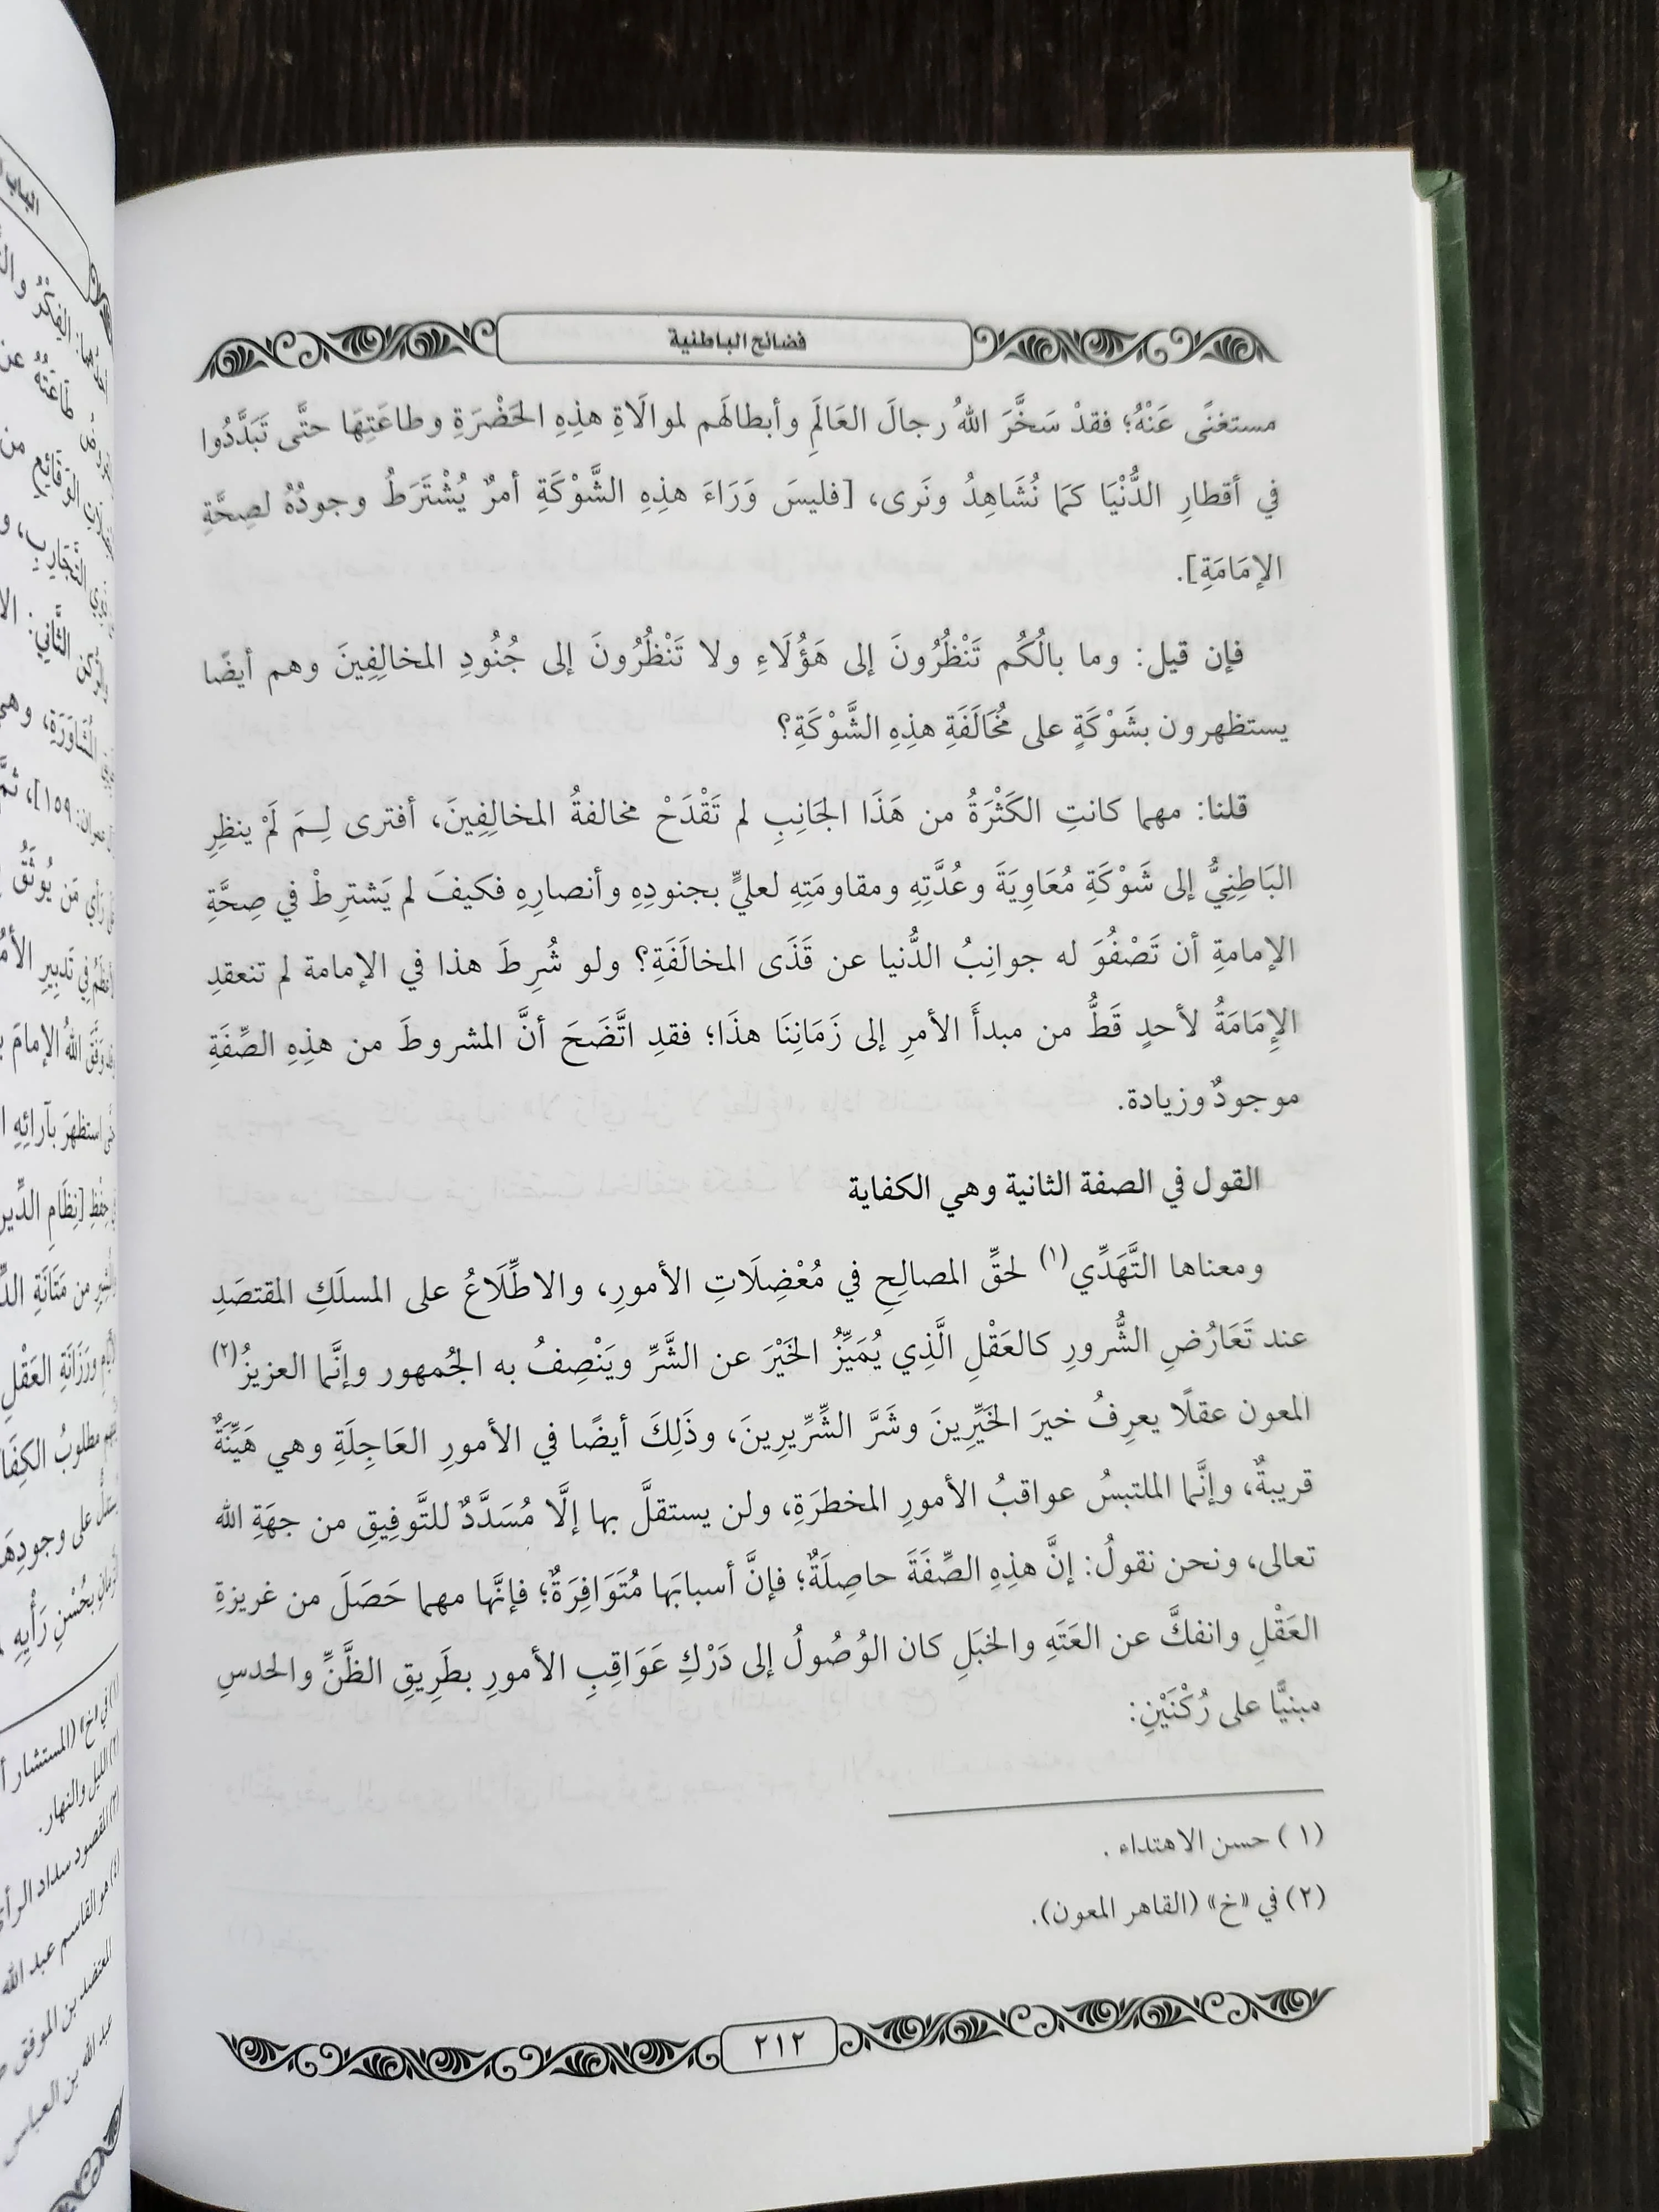 فضائح الباطنية
مستغنًى عَنْهُ؛ فقدْ سَخَّرَ اللهُ رجالَ العَالَمِ وأبطالَهم لموالَاةِ هذِهِ الحَضْرَةِ وطاعَتِهَا حتَّى تَبَدَّدُوا
في أقطارِ الدُّنْيَا كمَا نُشَاهِدُ ونَرى، [فليسَ وَرَاءَ هذِهِ الشَّوْكَةِ أمرٌ يُشْتَرَطُ وجودُهُ لصِحَّةِ
الإمَامَةِ].
فإن قيل: وما بالُكُم تَنْظُرُونَ إلى هَؤُلَاءِ ولا تَنْظُرُونَ إلى جُنُودِ المخالِفِينَ وهم أيضًا
يستظهرون بشَوْكَةٍ على مُخَالَفَةِ هذِهِ الشَّوْكَةِ؟
قلنا: مهما كانتِ الكَثْرَةُ من هَذَا الجَانِبِ لم تَقْدَحْ مخالفةُ المخالِفِينَ، أفترى لِـمَ لَمْ ينظِرِ
البَاطِنِيُّ إلى شَوْكَةِ مُعَاوِيَةَ وعُدَّتِهِ ومقاومَتِهِ لعليٍّ بجنودِهِ وأنصارِهِ فكيفَ لم يَشترِطْ في صِحَّةِ
الإمامةِ أن تَصْفُوَ له جوانِبُ الدُّنيا عن قَذَى المخالَفَةِ؟ ولو شُرِطَ هذا في الإمامة لم تنعقدِ
الإِمَامَةُ لأحدٍ قَطُّ من مبدأَ الأمرِ إلى زَمَانِنَا هذَا؛ فقدِ اتَّضَحَ أنَّ المشروطَ من هذِهِ الصِّفَةِ
موجودٌ وزيادة.
القول في الصفة الثانية وهي الكفاية
ومعناها التَّهَدِّي(١) لحقِّ المصالِحِ في مُعْضِلَاتِ الأمورِ، والاطِّلَاعُ على المسلَكِ المقتصَدِ
عند تَعَارُضِ الشُّرورِ كالعَقْلِ الَّذِي يُمَيِّزُ الخَيْرَ عن الشَّرِّ ويَنْصِفُ به الجُمهور وإنَّما العزيزُ(٢)
المعون عقلًا يعرِفُ خيرَ الخَيِّرِينَ وشَرَّ الشِّرِّيرِينَ، وذَلِكَ أيضًا في الأمورِ العَاجِلَةِ وهي هَيِّنَةٌ
قريبةٌ، وإنَّما الملتبسُ عواقبُ الأمورِ المخطرَةِ، ولن يستقلَّ بها إلَّا مُسَدَّدٌ للتَّوفِيقِ من جهَةِ الله
تعالى، ونحن نقولُ: إنَّ هذِهِ الصِّفَةَ حاصِلَةٌ؛ فإنَّ أسبابَها مُتَوَافِرَةٌ؛ فإنَّها مهما حَصَلَ من غريزةِ
العَقْلِ وانفكَّ عن العَتَهِ والخبَلِ كان الوُصُولُ إلى دَرْكِ عَوَاقِبِ الأمورِ بطَرِيقِ الظَّنِّ والحدسِ
مبنيًّا على رُكْنَيْنِ:
(١) حسن الاهتداء.
(٢) في «خ» (القاهر المعون).
٢١٢